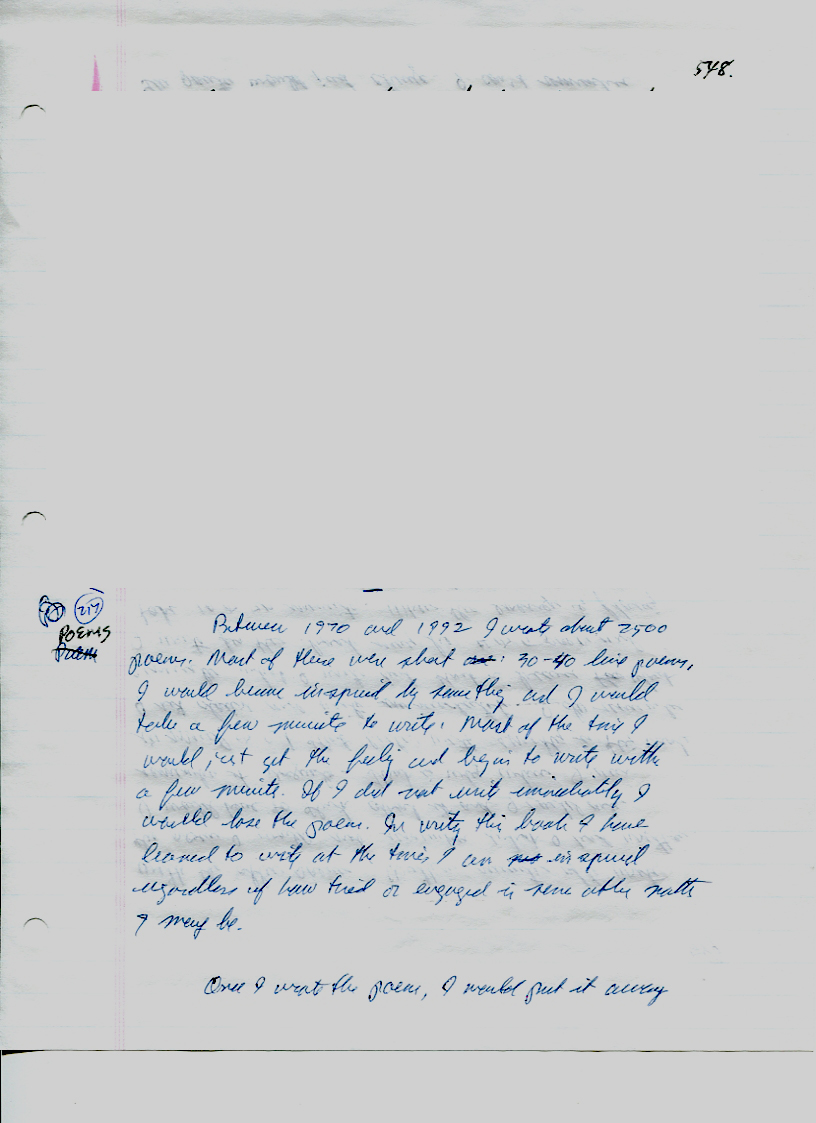 548.
217
POEMS
Poem
Between 1970 and 1992 I wrote about 2500
poems. Most of these were short : 30-40 line poems,
I would become inspired by something and I would
take a few minutes to write. Most of the time I
would just get the feeling and began to write within
a few minutes. If I did not write immediately I
would lose the poem. In writing this book I have
learned to write at the times I am inspired
regardless of how tired or engaged in some other matter
I may be.
Once I wrote the poem, I would put it away